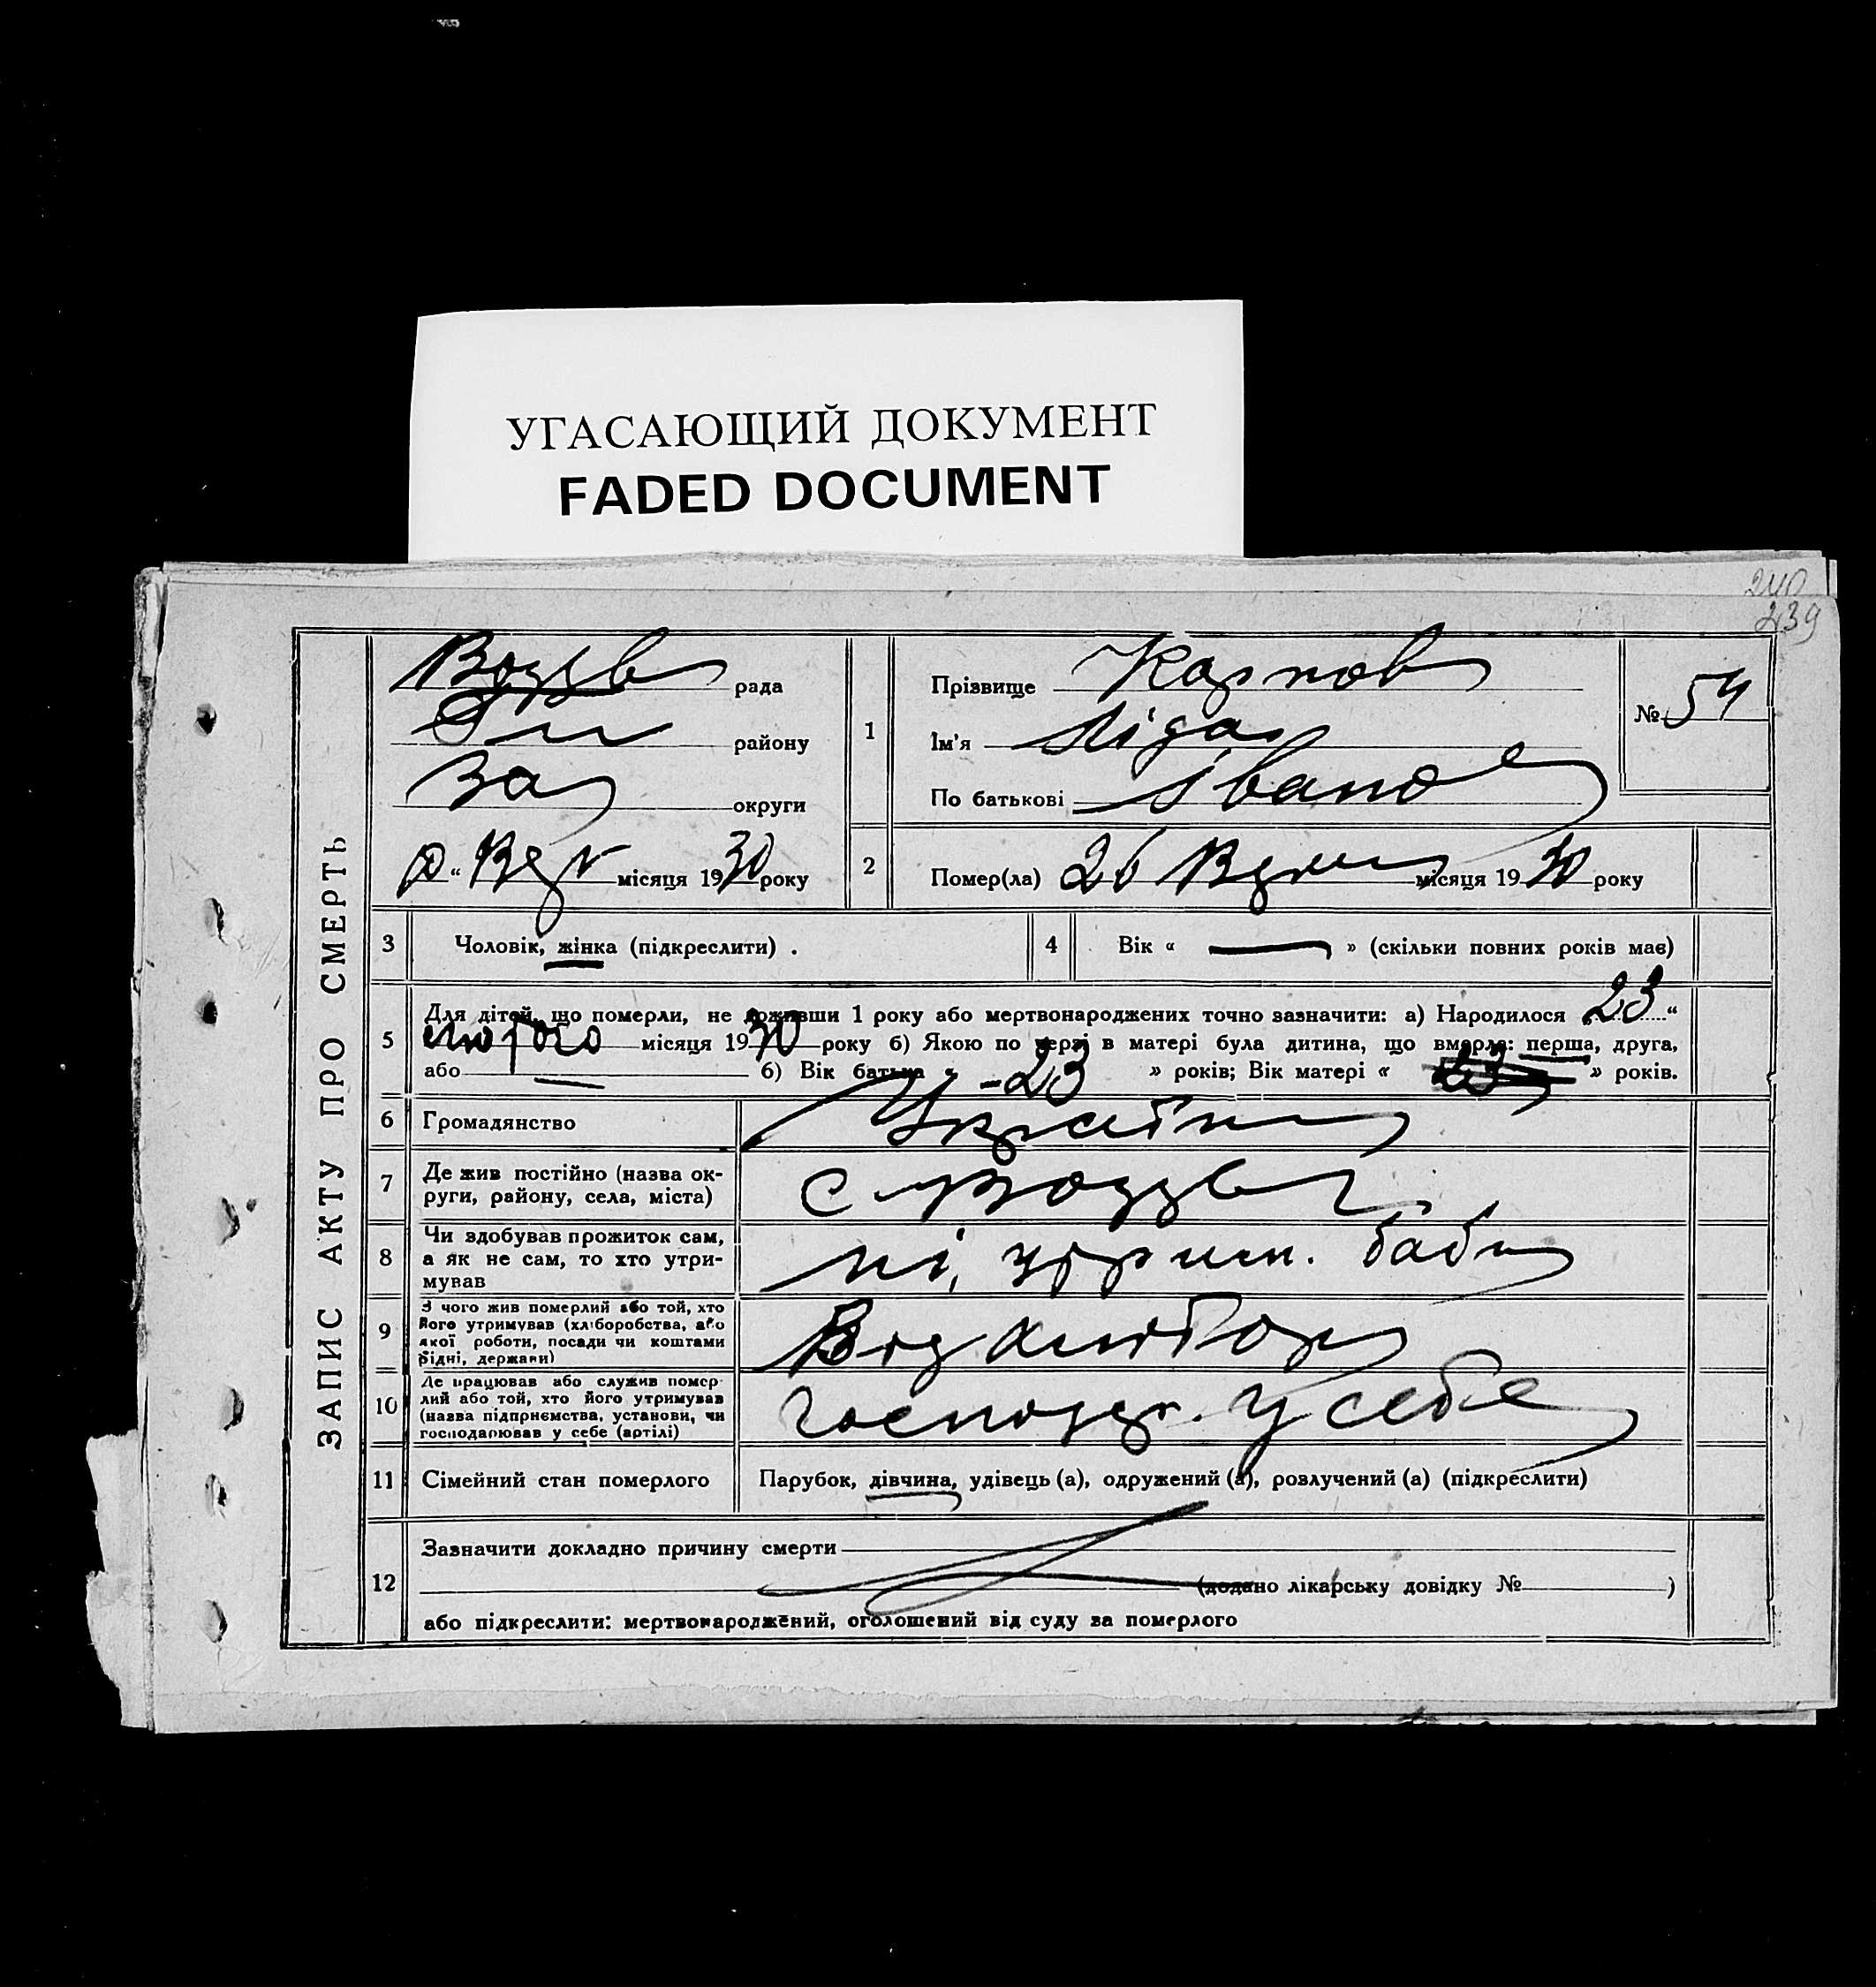 УГАСАЮЩИЙ ДОКУМЕНТ
FADED DOCUMENT
240
239
ЗАПИС АКТУ ПРО СМЕРТЬ
рада
району
округи
місяця 1930 року
1
Прізвище Карпов
Ім'я Ліда
По батькові Івано
№ 54
2
Помер(ла) 26 місяця 1930 року
3 Чоловік, жінка (підкреслити) .
4 Вік « — » (скільки повних років має)
5 Для дітей, що померли, не доживши 1 року або мертвонароджених точно зазначити: а) Народилося „23“
лютого місяця 1930 року б) Якою по черзі в матері була дитина, що вмерла: перша, друга,
або — б) Вік батька « -23 » років; Вік матері « » років.
6 Громадянство
7 Де жив постійно (назва ок-
руги, району, села, міста)
8 Чи здобував прожиток сам,
а як не сам, то хто утри-
мував
ні, баби
9 З чого жив померлий або той, хто
його утримував (хліборобства, або
якої роботи, посади чи коштами
рідні, держави)
10 Де працював або служив помер-
лий або той, хто його утримував
(назва підприємства, установи, чи
господарював у себе (артілі)
господ. у себе
11 Сімейний стан померлого
Парубок, дівчина, удівець (а), одружений (а), розлучений (а) (підкреслити)
12 Зазначити докладно причину смерти
(додано лікарську довідку № )
або підкреслити: мертвонароджений, оголошений від суду за померлого